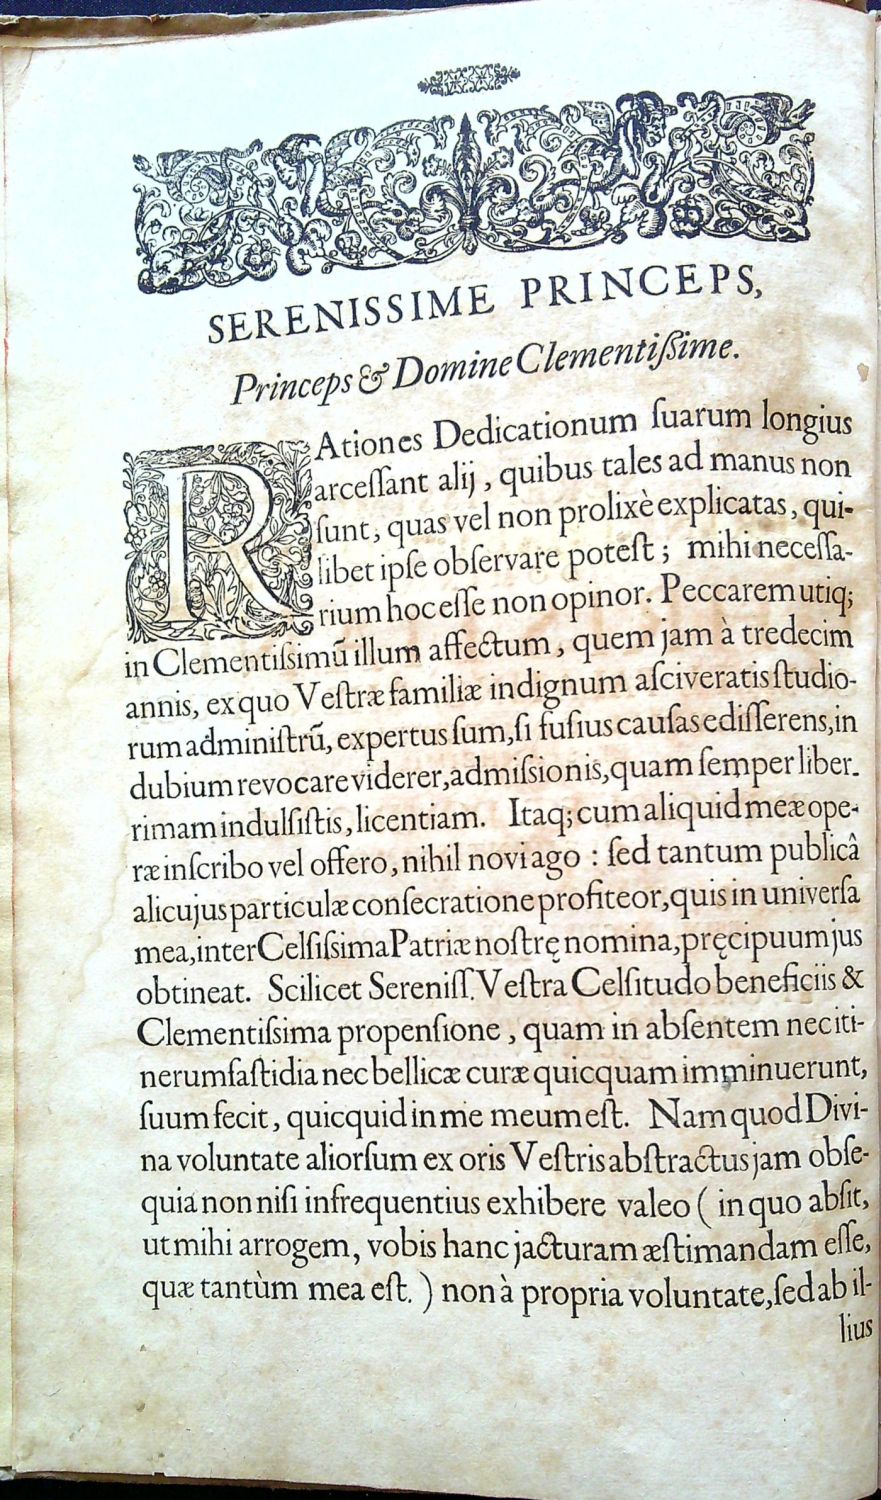 SERENISSIME PRINCEPS,
Princeps & Domine Clementiſſime.
RAtiones Dedicationum ſuarum longius
arceſſant alij, quibus tales ad manus non
ſunt, quas vel non prolixè explicatas, qui-
libet ipſe obſervare poteſt; mihi neceſſa-
rium hoc eſſe non opinor. Peccarem utiq;
in Clementiſsimũ illum affectum, quem jam à tredecim
annis, ex quo Veſtræ familiæ indignum aſciveratis ſtudio-
rum adminiſtrũ, expertus ſum, ſi fuſius cauſas ediſſerens, in
dubium revocare viderer, admiſsionis, quam ſemper liber-
rimam indulſiſtis, licentiam. Itaq; cum aliquid meæ ope-
ræ inſcribo vel offero, nihil novi ago : ſed tantum publicâ
alicujus particulæ conſecratione profiteor, quis in univerſa
mea, inter Celſiſsima Patriæ noſtrę nomina, pręcipuum jus
obtineat. Scilicet Sereniſſ. Veſtra Celſitudo beneficiis &
Clementiſsima propenſione, quam in abſentem nec iti-
nerum faſtidia nec bellicæ curæ quicquam imminuerunt,
ſuum fecit, quicquid in me meum eſt. Nam quod Divi-
na voluntate aliorſum ex oris Veſtris abſtractus jam obſe-
quia non niſi infrequentius exhibere valeo ( in quo abſit,
ut mihi arrogem, vobis hanc jacturam æſtimandam eſſe,
quæ tantùm mea eſt. ) non à propria voluntate, ſed ab il-
lius